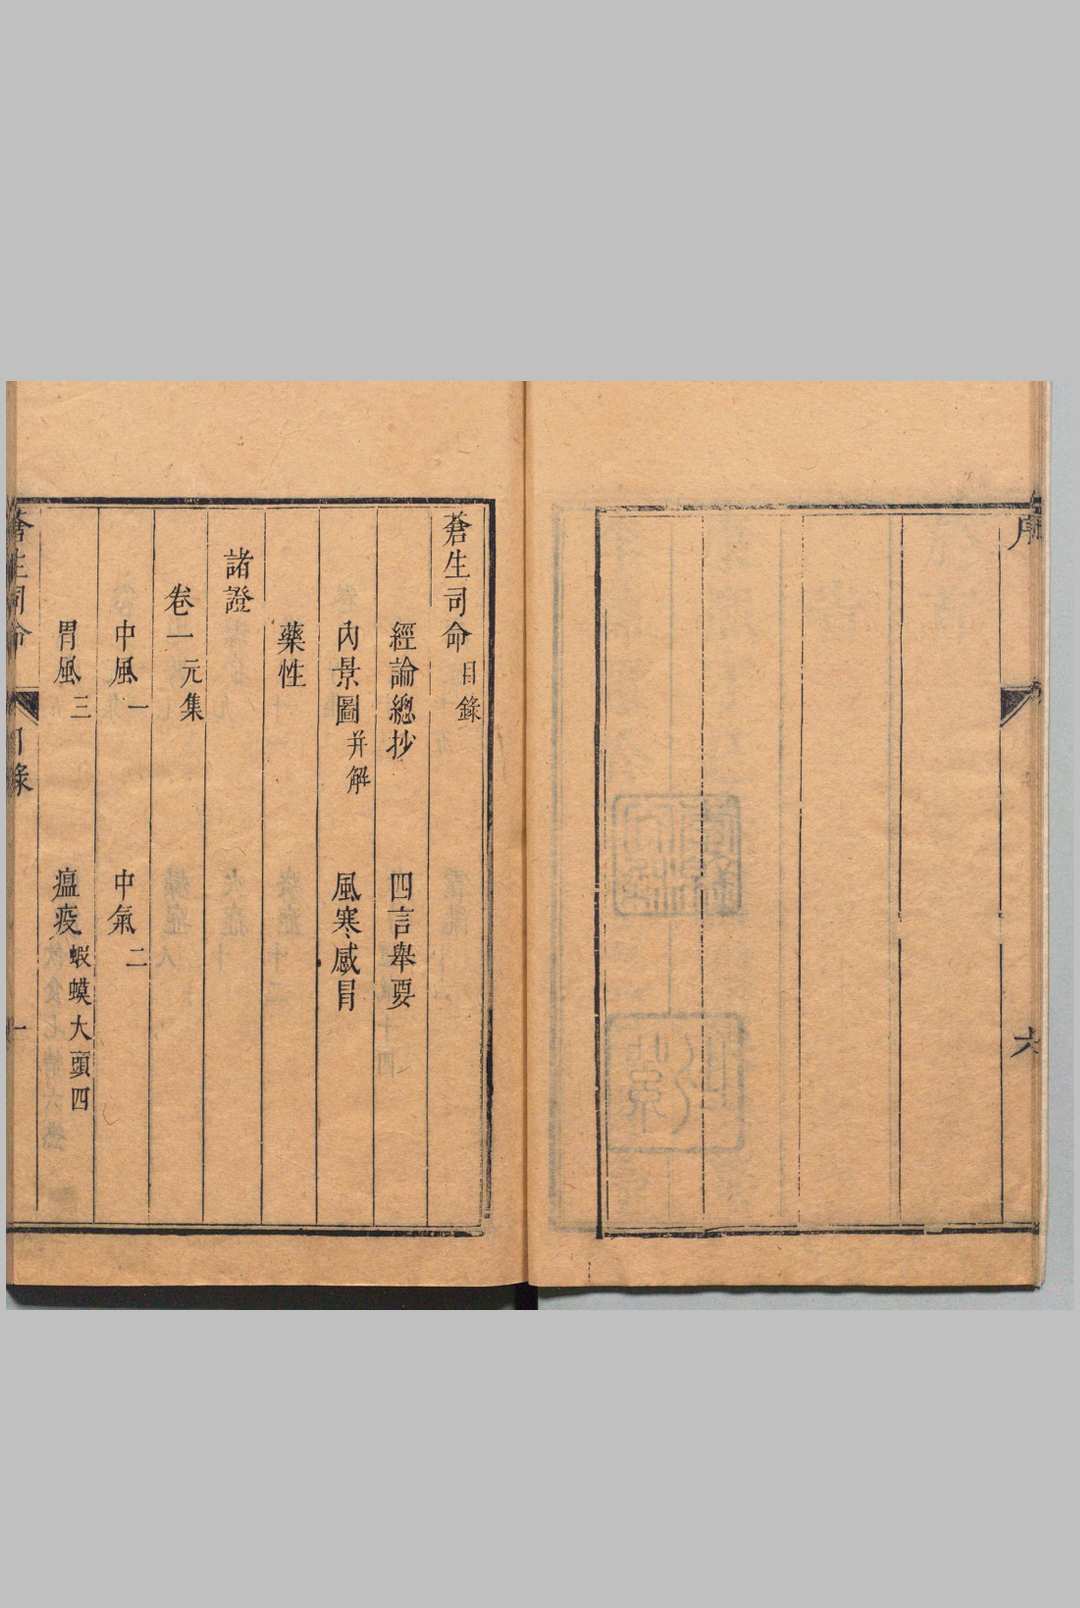 序
六
蒼生司命目錄
經論總抄 四言舉要
內景圖并解 風寒感冒
藥性
諸證
卷一元集
中風一 中氣二
胃風三 瘟疫蝦蟆大頭四
蒼生司命 目錄 一